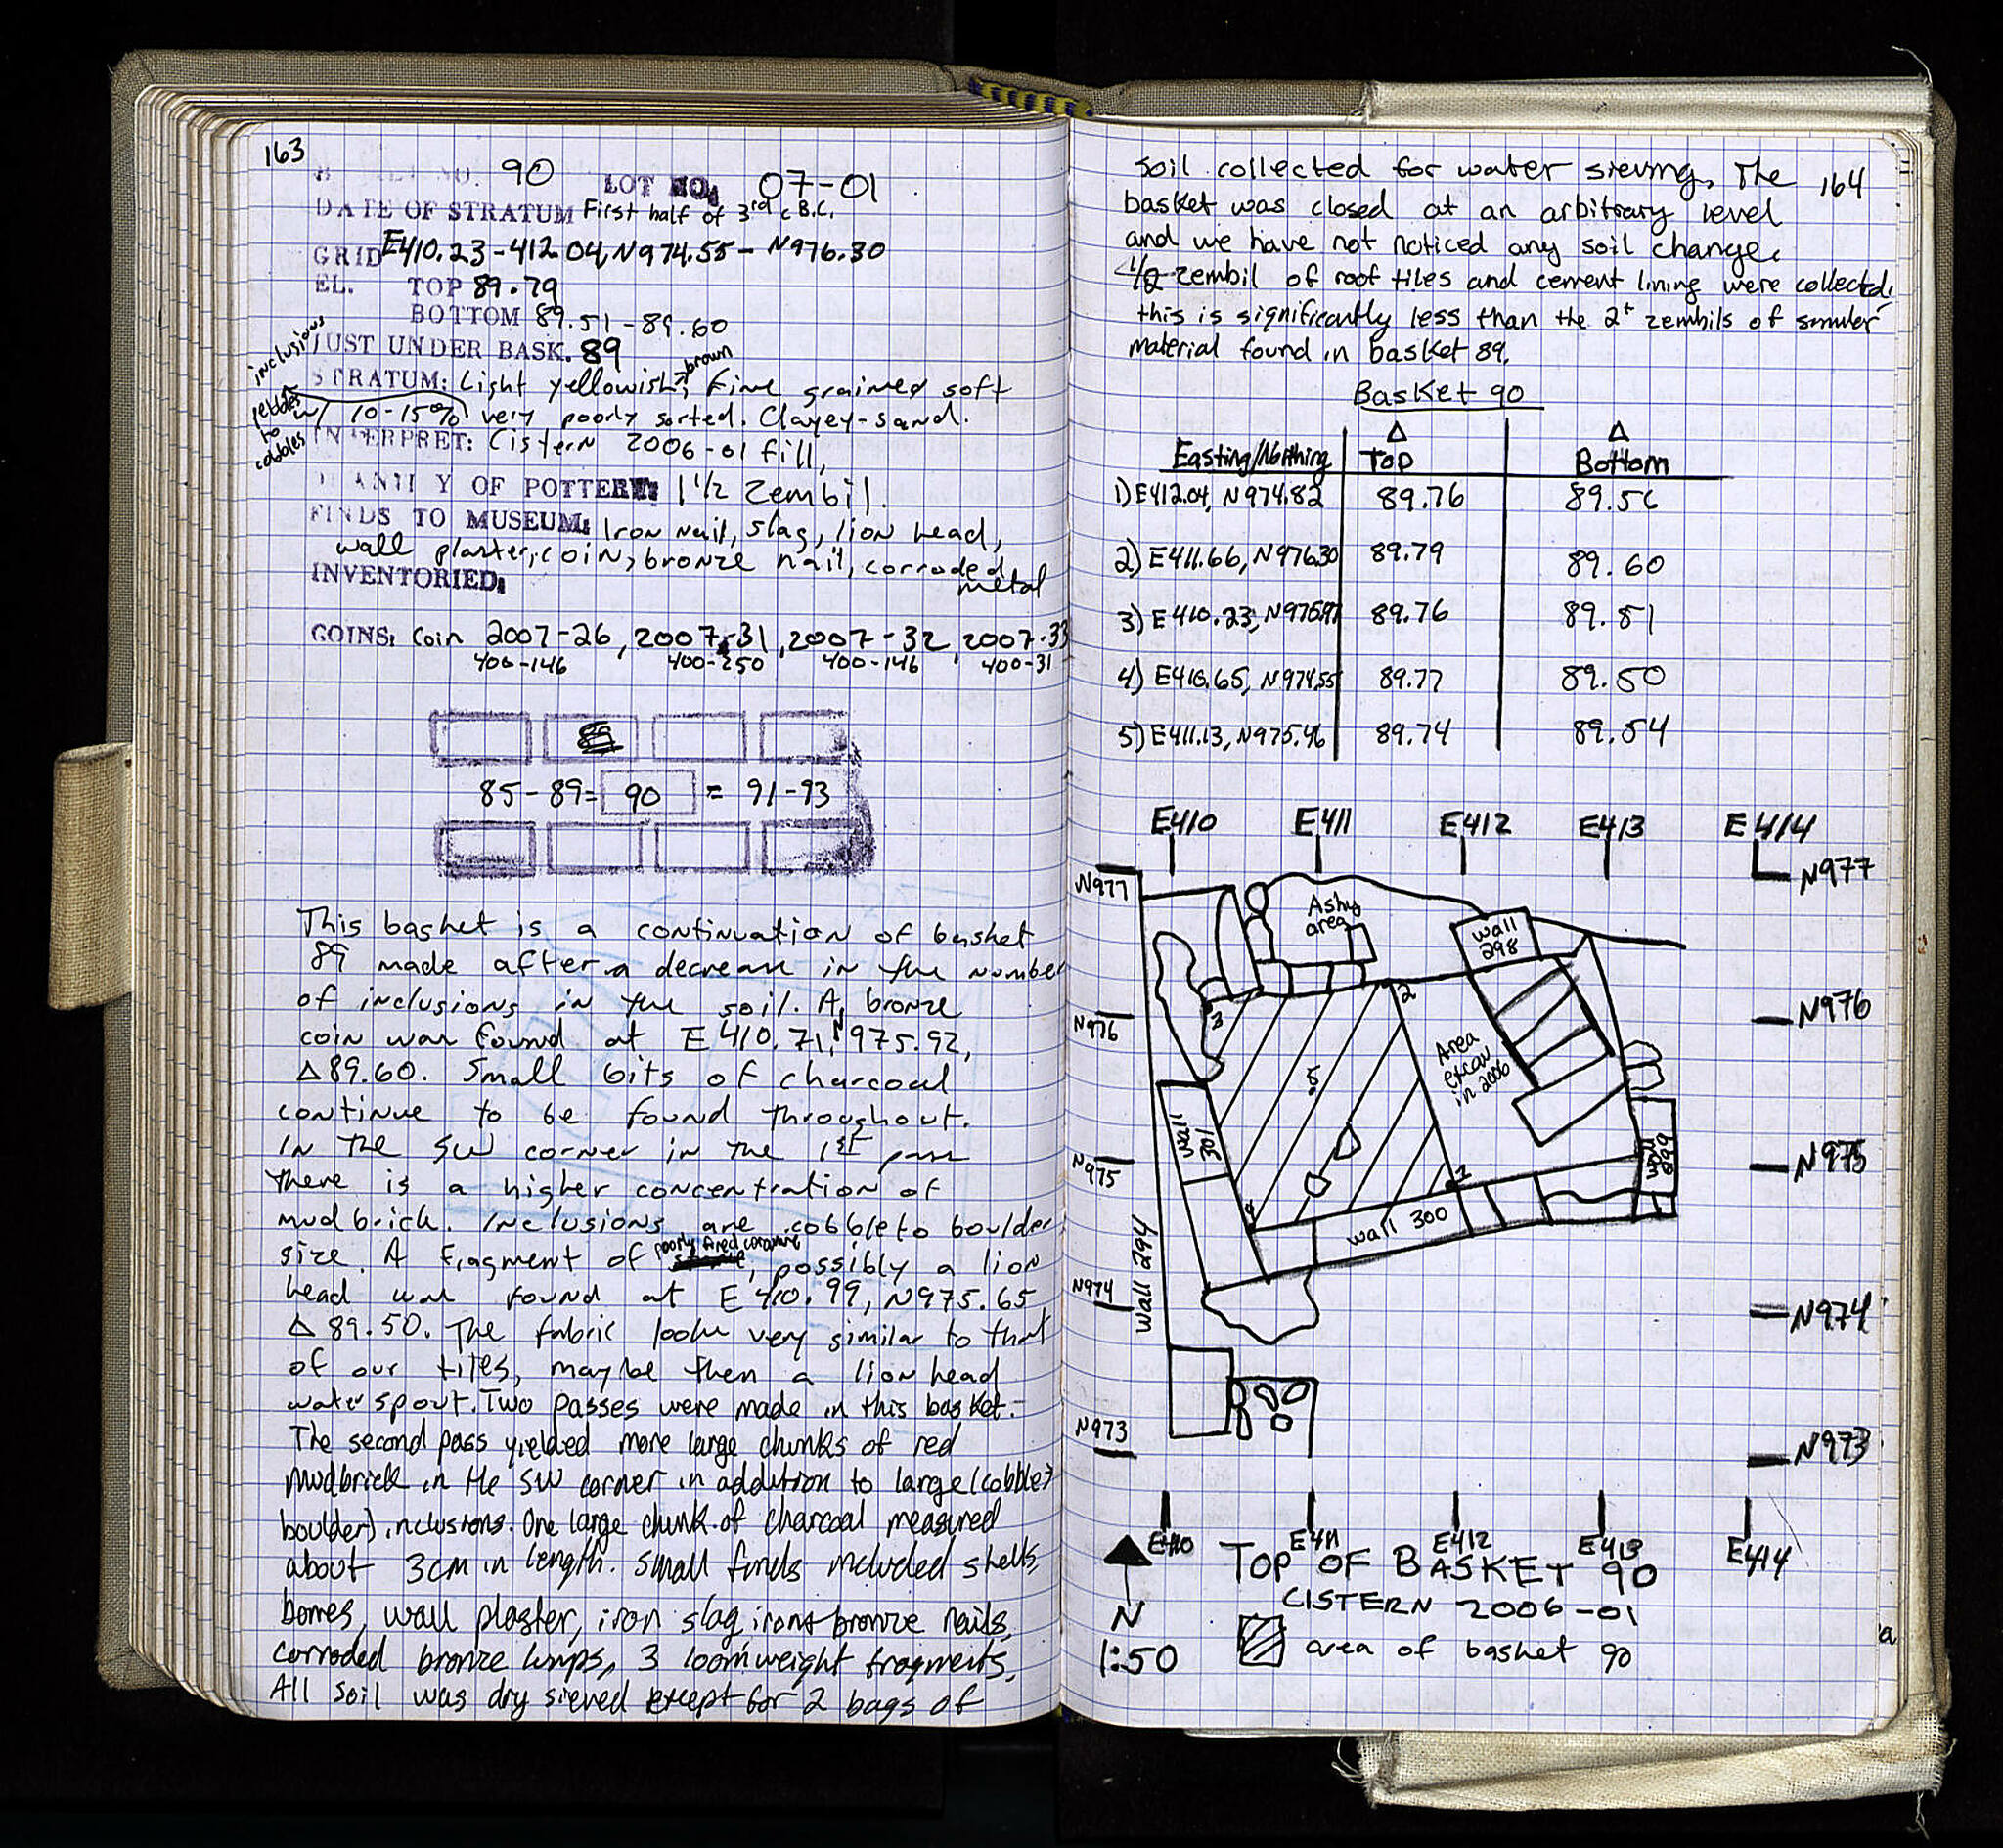 163
90 LOT NO. 07-01
DATE OF STRATUM First half of 3rd c B.C.
GRID E410.23-412.04, N974.55-N976.30
EL. TOP 89.79
BOTTOM 89.51-89.60
JUST UNDER BASK. 89
inclusions
brown
STRATUM: Light yellowish, fine grained soft
pebbles to cobbles
w/ 10-15% very poorly sorted. Clayey-sand.
INTERPRET: Cistern 2006-01 fill,
QUANTITY OF POTTERY: 1 1/2 Zembil.
FINDS TO MUSEUM: Iron nail, slag, lion head,
wall plaster, coin, bronze nail, corroded
metal
INVENTORIED:
COINS: Coin 2007-26, 2007-31, 2007-32, 2007-33
400-146 400-250 400-146, 400-31
89
85-89= 90 = 91-93
This basket is a continuation of basket
89 made after a decrease in the number
of inclusions in the soil. A bronze
coin was found at E410.71, N975.92,
Δ89.60. Small bits of charcoal
continue to be found throughout.
In the SW corner in the 1st pass
there is a higher concentration of
mudbrick. Inclusions are cobble to boulder
size. A fragment of poorly fired ceramic, possibly a lion
head was found at E410.99, N975.65
Δ89.50. The fabric looks very similar to that
of our tiles, maybe then a lion head
water spout. Two passes were made in this basket.-
The second pass yielded more large chunks of red
mudbrick in the SW corner in addition to large (cobble >
boulder) inclusions. One large chunk of charcoal measured
about 3cm in length. Small finds included shells,
bones, wall plaster, iron slag, iron + bronze nails,
corroded bronze lumps, 3 loomweight fragments.
All soil was dry sieved except for 2 bags of
soil collected for water sieving. The 164
basket was closed at an arbitrary level
and we have not noticed any soil change.
<1/2 zembil of roof tiles and cement lining were collected.
this is significantly less than the 2+ zembils of similar
material found in basket 89.
Basket 90
Easting/Northing Δ Top Δ Bottom
1) E412.04, N974.82 89.76 89.56
2) E411.66, N976.30 89.79 89.60
3) E410.23, N975.97 89.76 89.51
4) E410.65, N974.55 89.77 89.50
5) E411.13, N975.46 89.74 89.54
E410 E411 E412 E413 E414
N977 N977
Ashy
area
wall
298
2
3
N976 N976
Area
excav
in 2006
5
wall
301
wall
299
N975 N975
1
4
wall 300
wall 294
N974 N974
N973 N973
E410 E411 E412 E413 E414
TOP OF BASKET 90
CISTERN 2006-01
N
area of basket 90
1:50